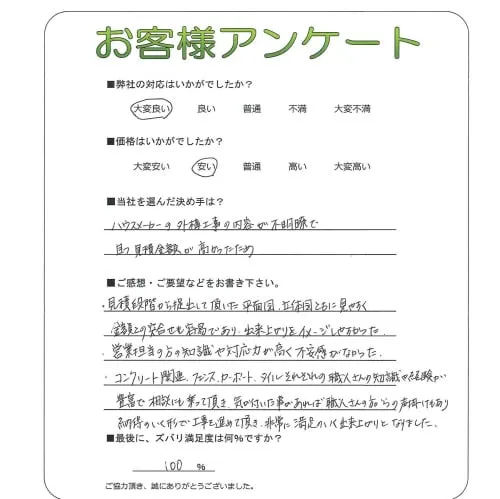 お客様アンケート
■弊社の対応はいかがでしたか？
大変良い 良い 普通 不満 大変不満
■価格はいかがでしたか？
大変安い 安い 普通 高い 大変高い
■当社を選んだ決め手は？
ハウスメーカーの外構工事の内容が不明瞭で
且つ見積金額が高かったため
■ご感想・ご要望などをお書き下さい。
・見積段階から提出して頂いた平面図、立体図ともに見やすく
金額との突合せも容易であり、出来上がりをイメージしやすかった。
・営業担当の方の知識や対応力が高く不安感がなかった。
・コンクリート関連、フェンス、カーポート、タイルそれぞれの職人さんの知識や経験が
豊富で相談にも乗って頂き、気が付いた事があれば職人さんの方からの声掛けもあり
納得のいく形で工事を進めて頂き、非常に満足のいく出来上がりとなりました。
■最後に、ズバリ満足度は何%ですか？
100 %
ご協力頂き、誠にありがとうございました。